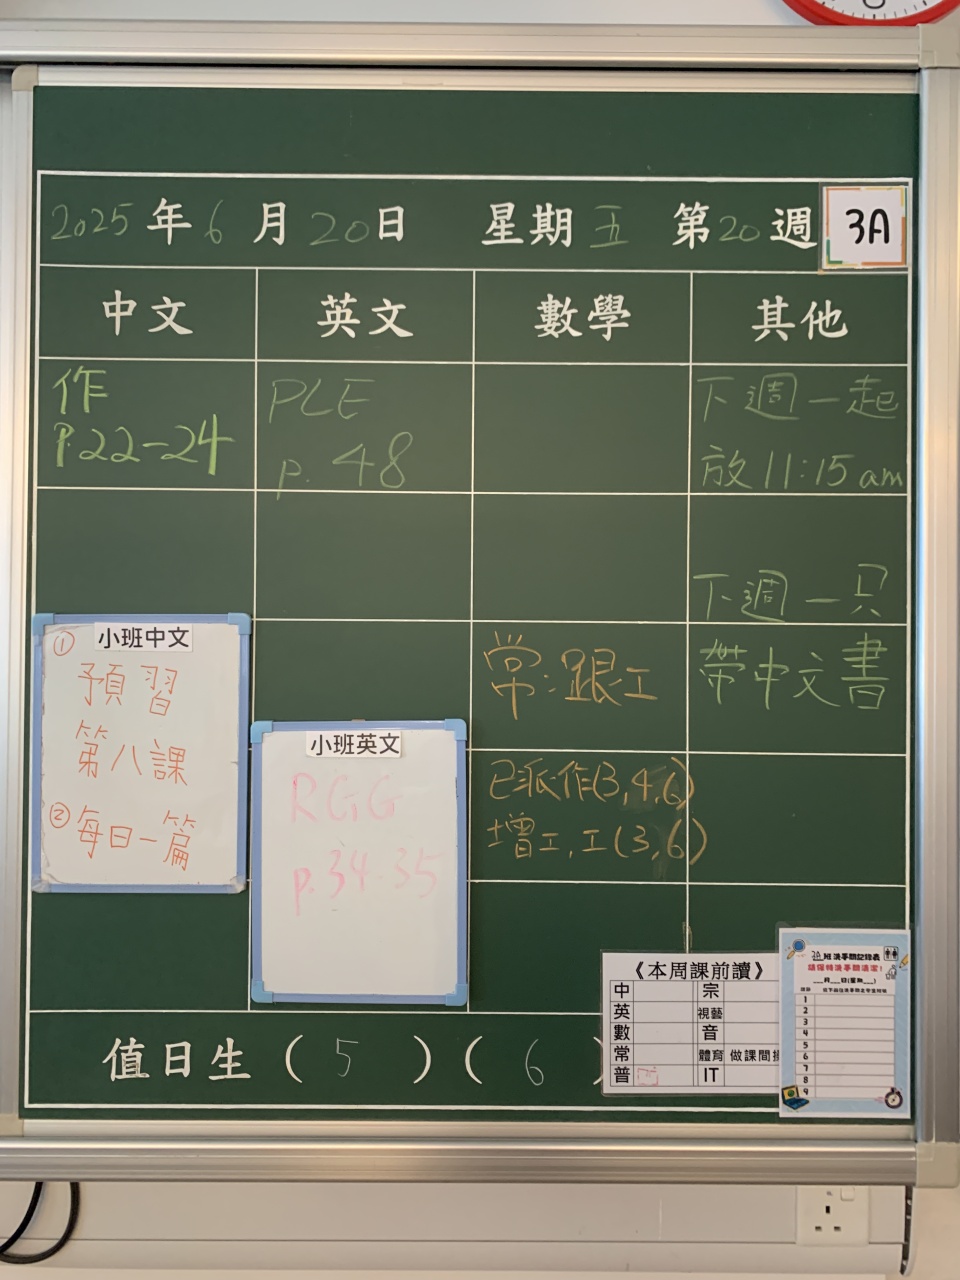 2025年6月20日 星期五 第20週 3A
中文 英文 數學 其他
作
P.22-24
PLE
p. 48
下週一起
放11:15am
下週一只
帶中文書
常:跟工
已派作(3,4,6)
增工,工(3,6)
小班中文
① 預習
第八課
② 每日一篇
小班英文
RGG
p.34-35
值日生(5)(6)
《本周課前讀》
中 宗
英 視藝
數 音
常 體育 做課間操
普 IT
3A班洗手間記錄表
請保持洗手間清潔!
___月___日(星期___)
1
2
3
4
5
6
7
8
9